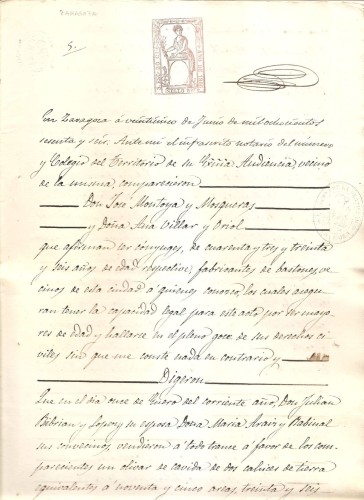 5.
En Zaragoza á veinticinco de Junio de mil ochocientos
sesenta y seis: Ante mí el infrascrito notario del número
y Colegio del Territorio de su Audiencia, vecino
de la misma, comparecieron
Don José Montoya y Mosqueras
y Doña Ana Villar y Oriol
que afirman ser cónyuges, de cuarenta y tres y treinta
y seis años de edad respective, fabricantes de bastones, ve-
cinos de esta ciudad á quienes conozco, los cuales asegu-
ran tener la capacidad legal para este acto por ser mayo-
res de edad y hallarse en el pleno goce de sus derechos ci-
viles sin que me conste nada en contrario y
Digeron
Que en el dia once de Enero del corriente año, Don Julian
Bibrian y Lopez y su esposa Doña Maria Araiz y Rabinal
sus convecinos, vendieron á todo trance á favor de los com-
parecientes un olivar de cavida de dos cahices de tierra
equivalentes á noventa y cinco areas treinta y seis